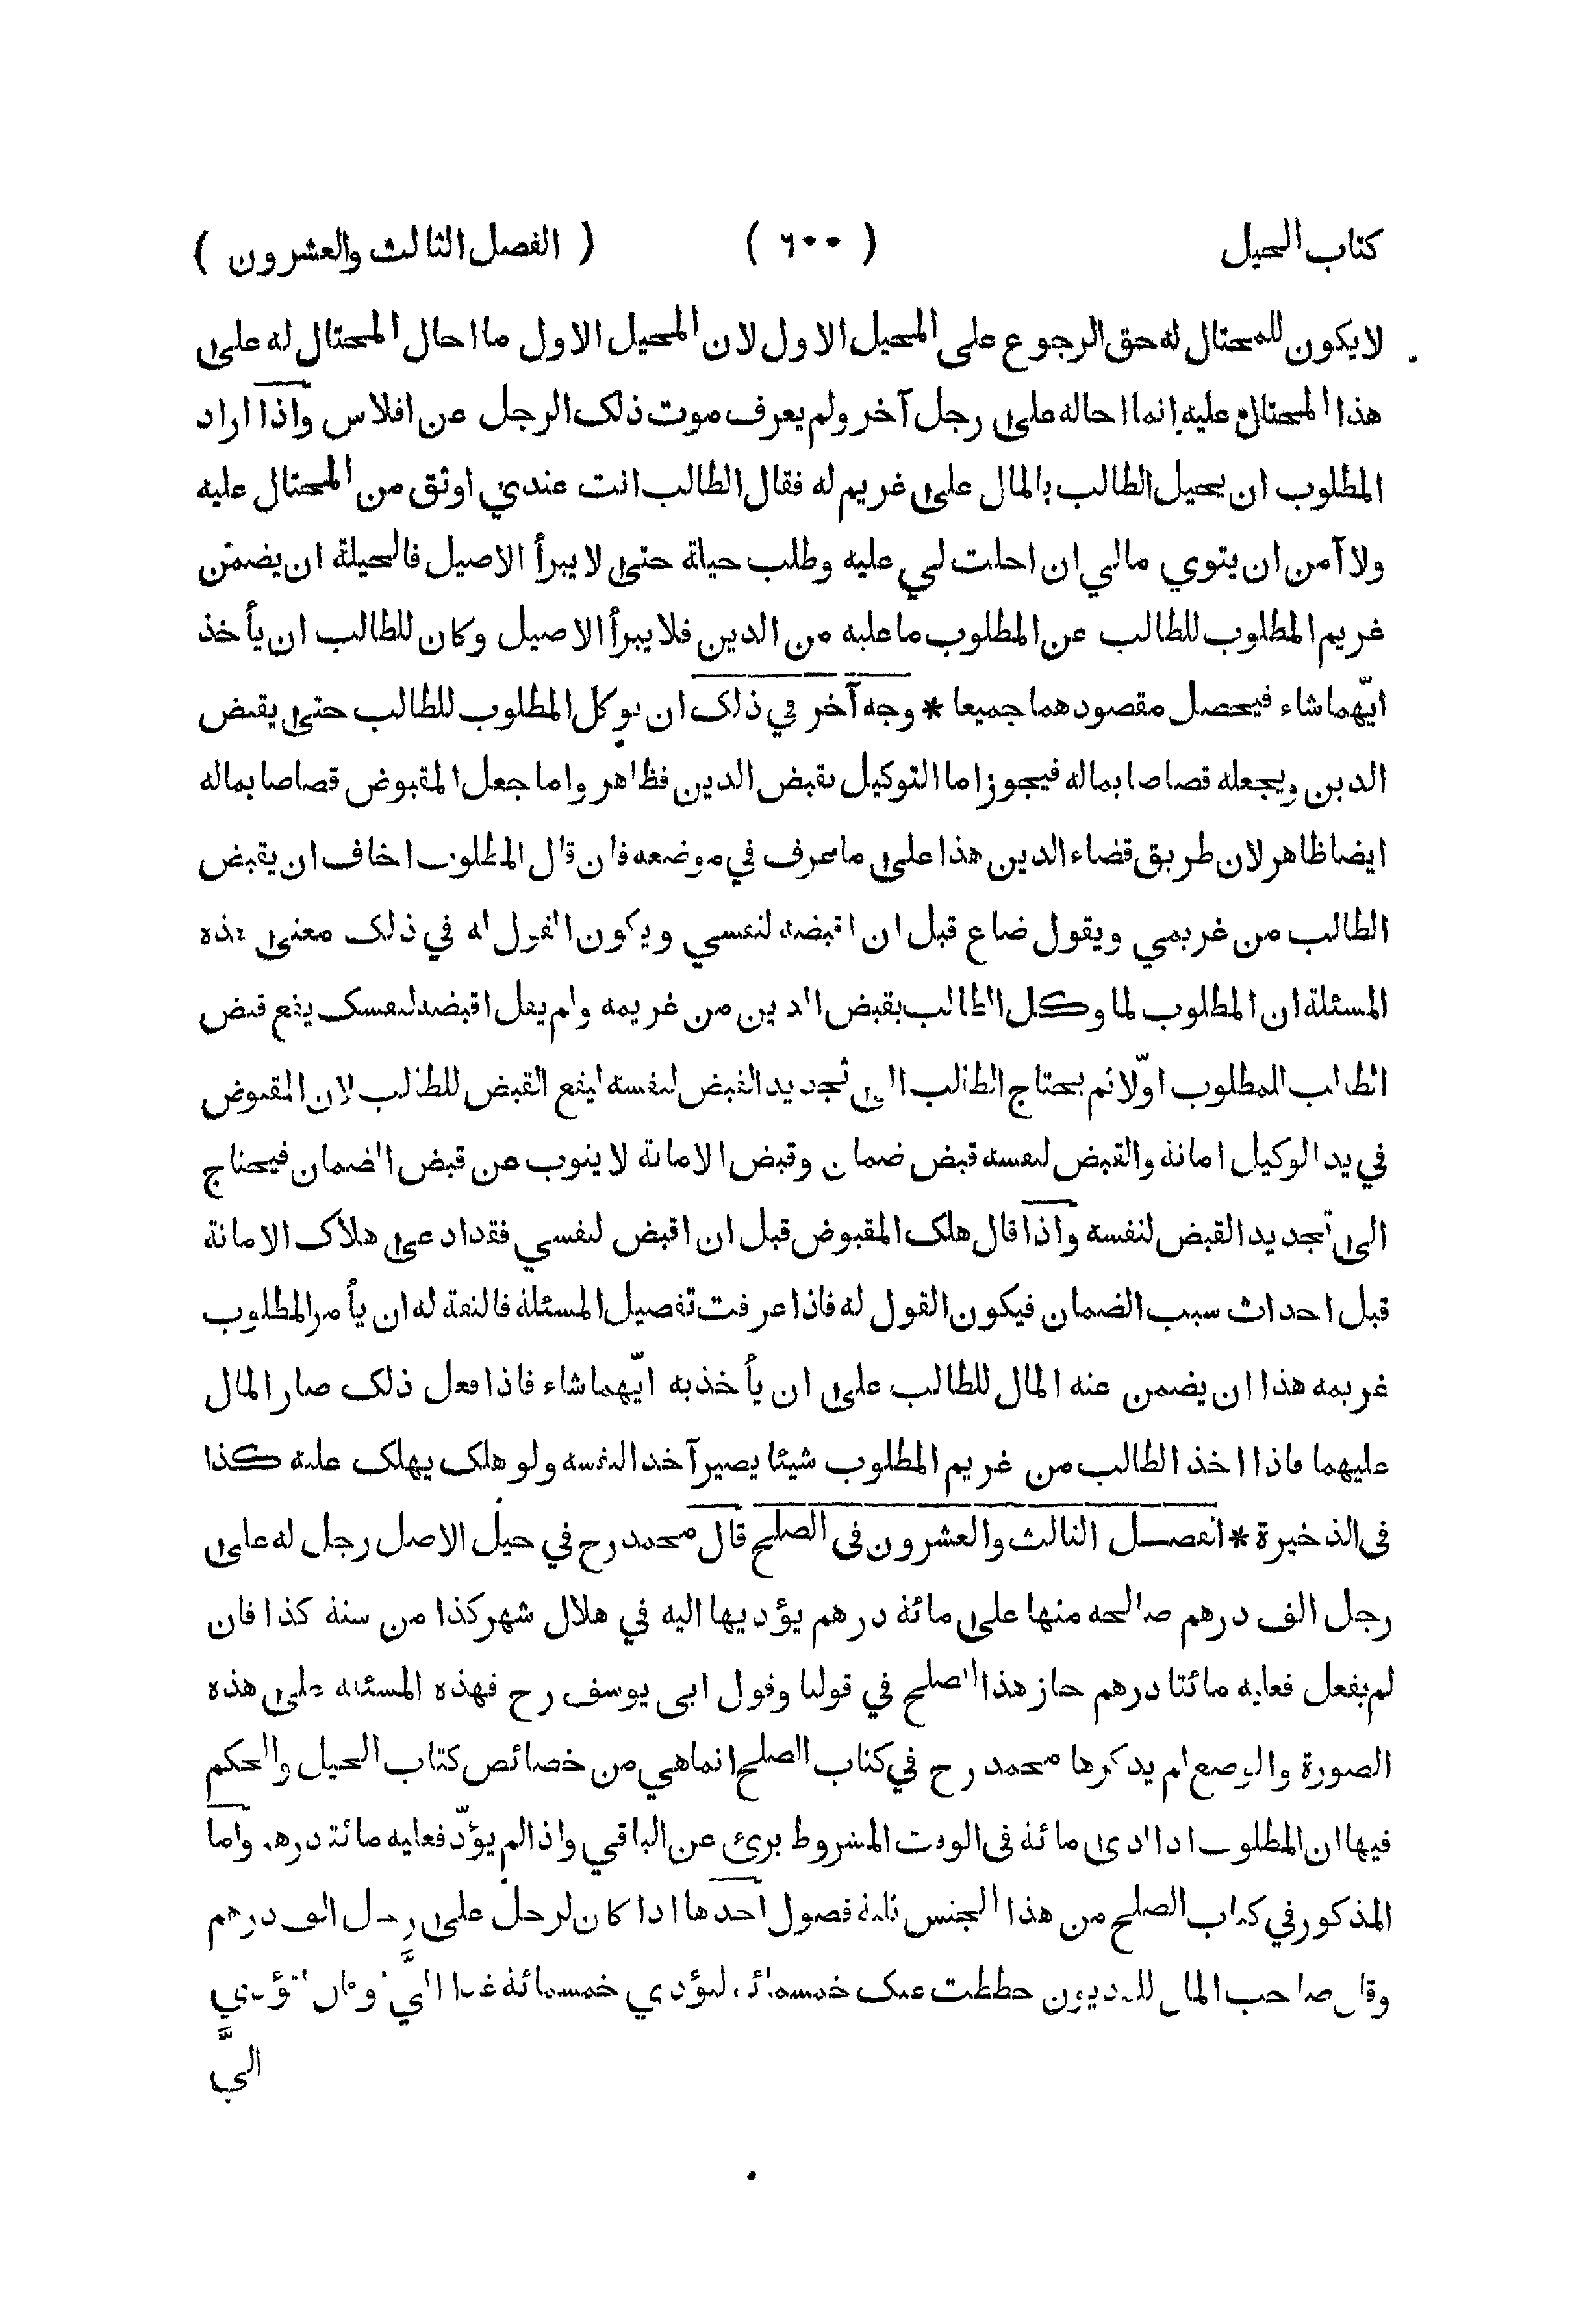 كتاب الحيل ( ٦٠٠ ) ( الفصل الثالث والعشرون )
لا يكون للمحتال له حق الرجوع على المحيل الاول لان المحيل الاول ما احال المحتال له على
هذا المحتال عليه انما احاله على رجل آخر ولم يعرف موت ذلك الرجل عن افلاس واذا اراد
المطلوب ان يحيل الطالب بالمال على غريم له فقال الطالب انت عندي اوثق من المحتال عليه
ولا آمن ان يتوي مالي ان احلت لي عليه وطلب حياة حتى لا يبرأ الاصيل فالحيلة ان يضمن
غريم المطلوب للطالب عن المطلوب ما عليه من الدين فلا يبرأ الاصيل وكان للطالب ان يأخذ
ايّهما شاء فيحصل مقصودهما جميعا * وجه آخر في ذلك ان يوكل المطلوب للطالب حتى يقبض
الدين ويجعله قصاصا بماله فيجوز اما التوكيل بقبض الدين فظاهر واما جعل المقبوض قصاصا بماله
ايضا ظاهر لان طريق قضاء الدين هذا على ما عرف في موضعه فان قال المطلوب اخاف ان يقبض
الطالب من غريمي ويقول ضاع قبل ان اقبضه لنفسي ويكون القول له في ذلك معنى هذه
المسئلة ان المطلوب لما وكل الطالب بقبض الدين من غريمه ولم يقل اقبضه لنفسك يقع قبض
الطالب للمطلوب اوّلا ثم يحتاج الطالب الى تجديد القبض لنفسه ليقع القبض للطالب لان المقبوض
في يد الوكيل امانة والقبض لنفسه قبض ضمان وقبض الامانة لا ينوب عن قبض الضمان فيحتاج
الى تجديد القبض لنفسه واذا قال هلك المقبوض قبل ان اقبض لنفسي فقد ادعى هلاك الامانة
قبل احداث سبب الضمان فيكون القول له فاذا عرفت تفصيل المسئلة فالثقة له ان يأمر المطلوب
غريمه هذا ان يضمن عنه المال للطالب على ان يأخذ به ايّهما شاء فاذا فعل ذلك صار المال
عليهما فاذا اخذ الطالب من غريم المطلوب شيئا يصير آخذا لنفسه ولو هلك يهلك عليه كذا
فى الذخيرة * الفصل الثالث والعشرون فى الصلح قال محمد رح في حيل الاصل رجل له على
رجل الف درهم صالحه منها على مائة درهم يؤديها اليه في هلال شهر كذا من سنة كذا فان
لم يفعل فعليه مائتا درهم جاز هذا الصلح في قولنا وقول ابى يوسف رح فهذه المسئلة على هذه
الصورة والوضع لم يذكرها محمد رح في كتاب الصلح انما هي من خصائص كتاب الحيل والحكم
فيها ان المطلوب اذا ادى مائة فى الوقت المشروط برئ عن الباقي واذا لم يؤدّ فعليه مائة درهم واما
المذكور في كتاب الصلح من هذا الجنس ثلثة فصول احدها اذا كان لرجل على رجل الف درهم
وقال صاحب المال للمديون حططت عنك خمسمائة لتؤدي خمسمائة غدا اليَّ وقال تؤدي
اليَّ